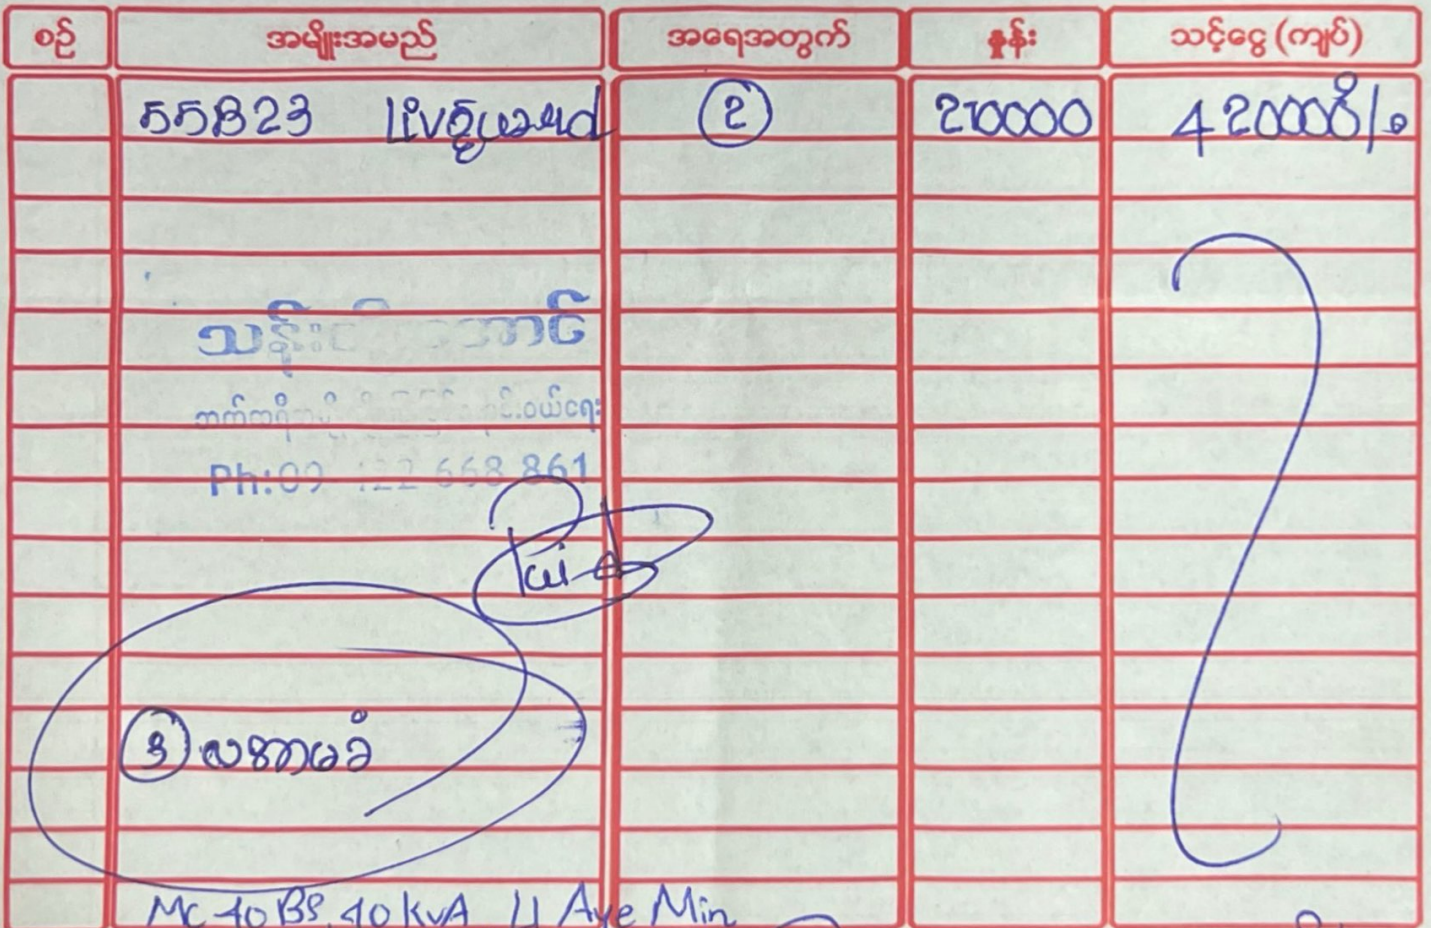 စဉ် အမျိုးအမည် အရေအတွက် နှုန်း သင့်ငွေ (ကျပ်)
55B23 2 210000 420000/-
သန်း အောင်
ဘက်ထရီ ဝယ်ရေး
Ph:09 422 668 861
Paid
3 လအာမခံ
MC 40 BS, 40 KVA U Aye Min